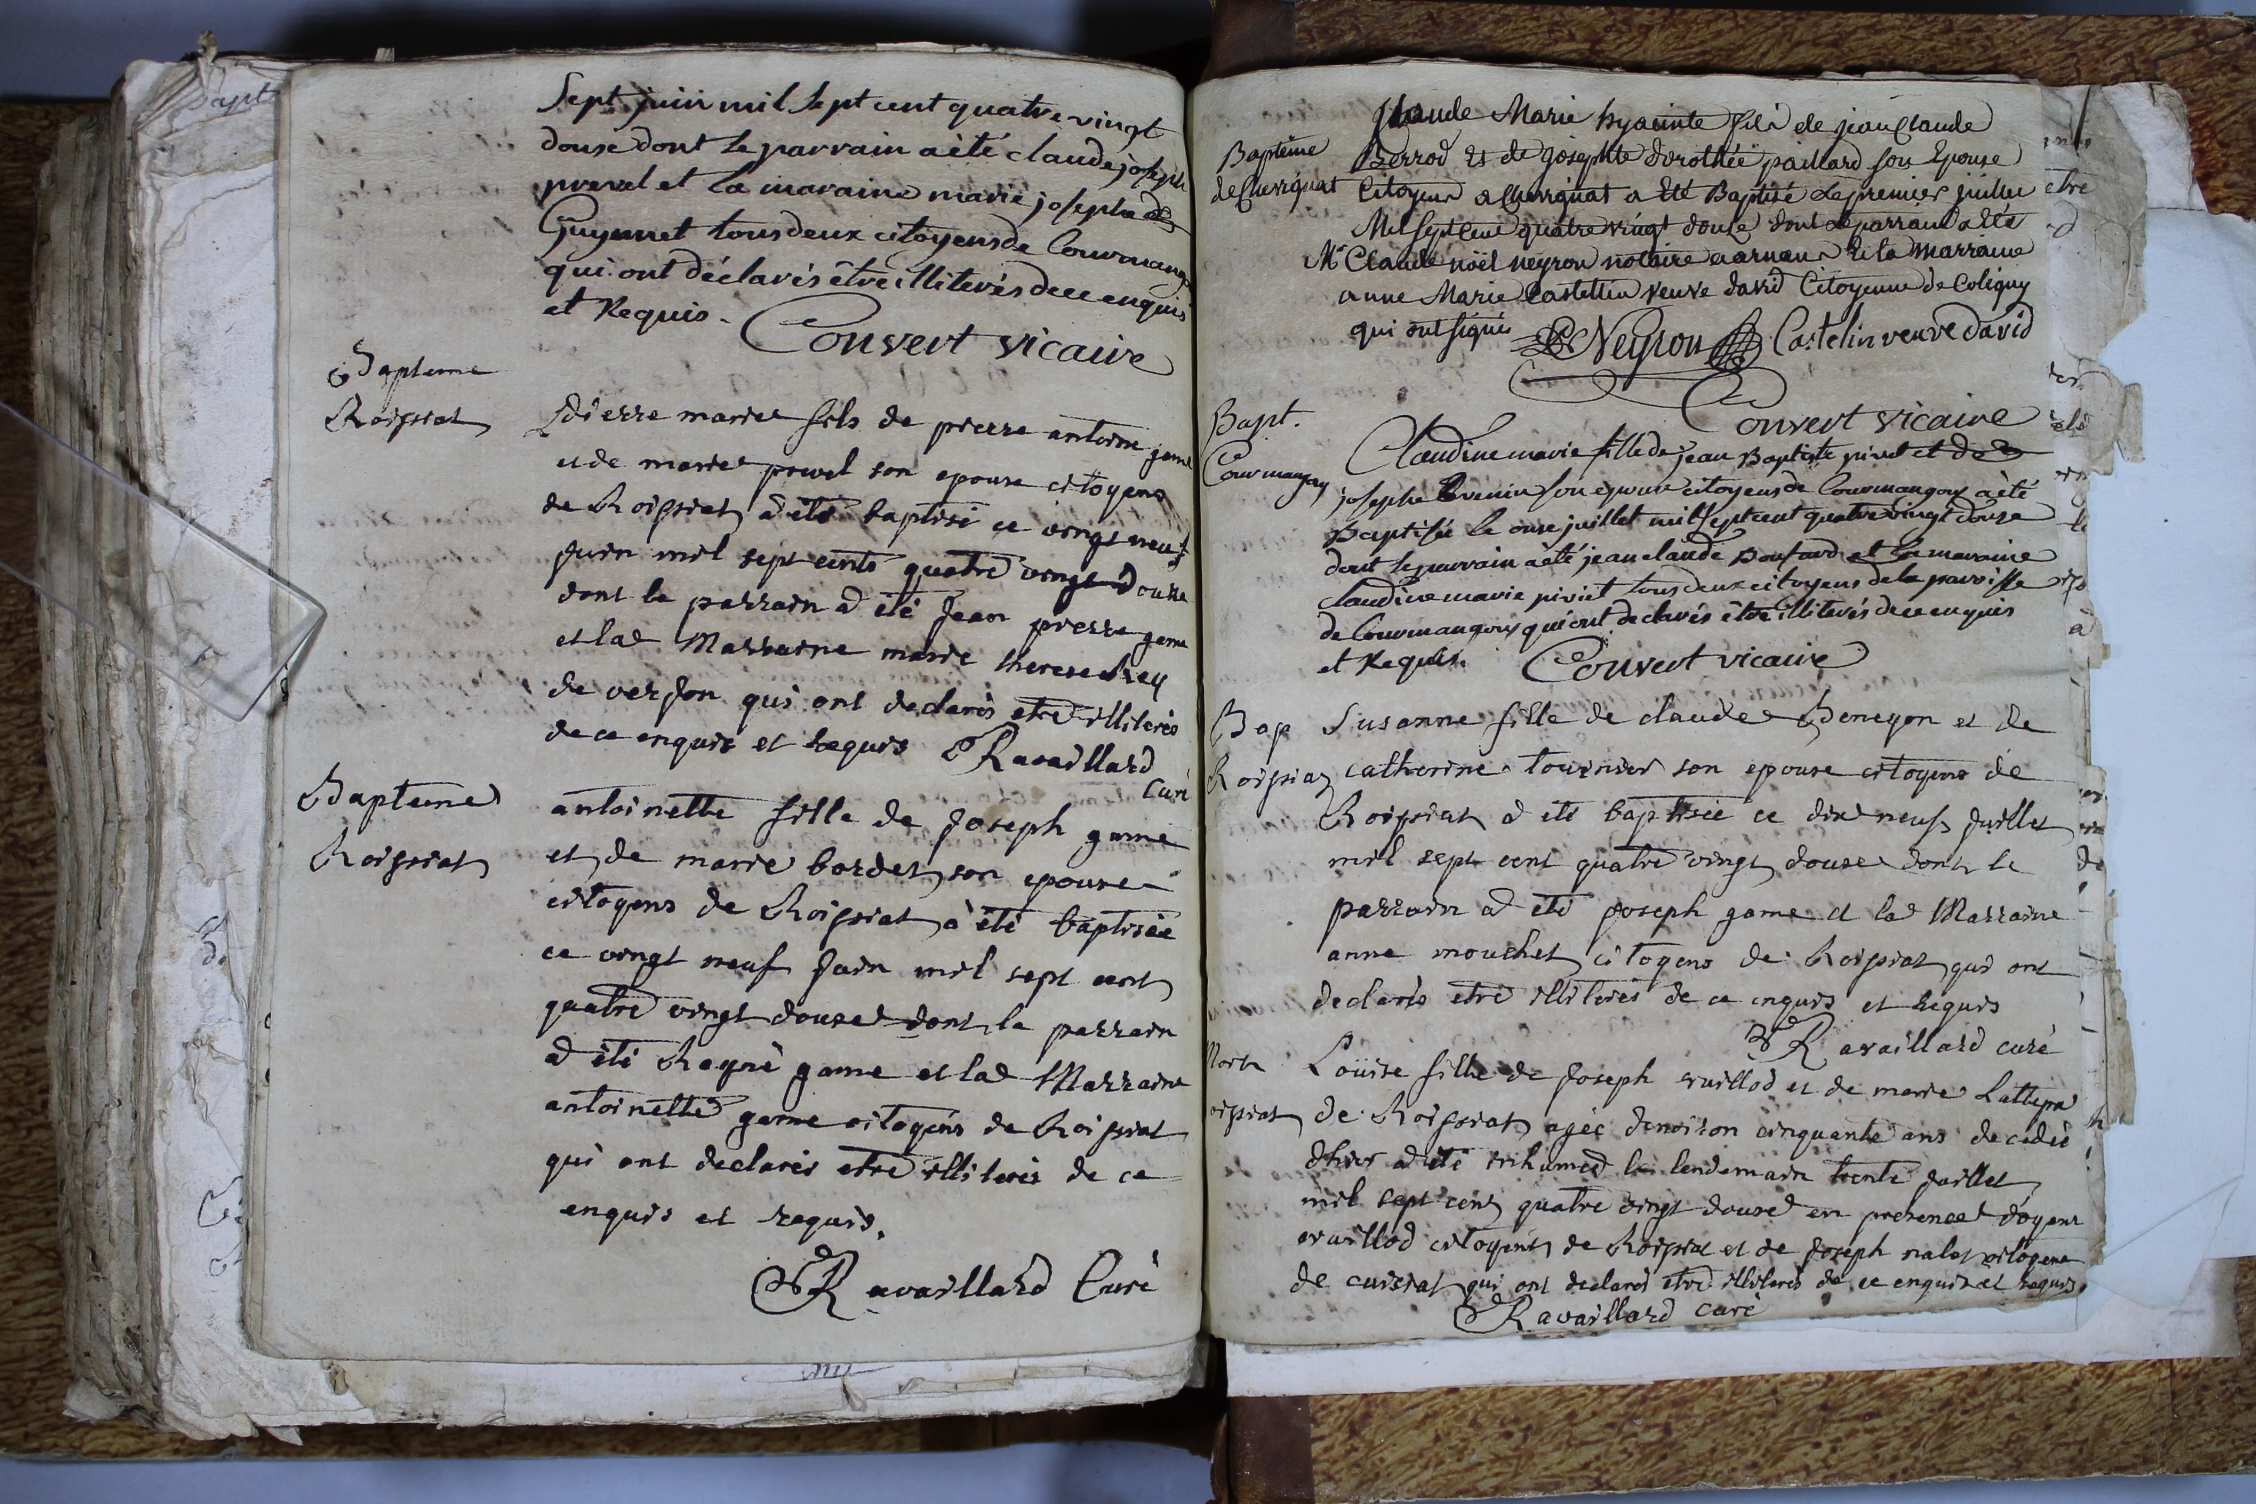 Sept juin mil sept cent quatre vingt
douse dont le parrain a été claude joseph
prevel et la maraine marie josephe
Guyennet tous deux citoyens de Courmangou
qui ont déclarés être illiterés de ce enquis
et Requis.
Convert vicaire
Bapteme
Roissiat
Pierre marie fils de pierre antoine game
et de marie prevel son epouse citoyens
de Roissiat a été baptisé ce vingt neuf
Juin mil sept cents quatre vingt douse
dont le parrain a été Jean pierre game
et la Marraine marie therese Rey
de verjon qui ont declarés etre illiterés
de ce enquis et requis Ravaillard
Curé
Bapteme
Roissiat
antoinette fille de Joseph game
et de marie bordet son epouse
citoyens de Roissiat a été baptisée
ce vingt neuf Juin mil sept cent
quatre vingt douse dont le parrain
a été Regné game et la Marraine
antoinette game citoyens de Roissiat
qui ont declarés etre illiterés de ce
enquis et requis.
Ravaillard Curé
Baptême
de Chevignat
Claude Marie hyacinte fils de jean Claude
Berrod et de josephte dorothée paillard son Epouse
Citoyens a Chevignat a été Baptisé Le premier juillet
Mil sept cent quatre vingt douse dont Le parrain a été
Mr Claude noël neyron notaire a arnans et la Marraine
anne Marie Castellin veuve david Citoyenne de Coligny
qui ont signés Neyron Castelin veuve david
Convert vicaire
Bapt.
Courmangoux
Claudine marie fille de jean Baptiste pivet et de
josephe Evenin son epouse citoyens de Courmangoux a été
Baptisée le onse juillet mil sept cent quatre vingt douse
dont le parrain a été jean claude Boufard et la maraine
claudine marie pivet tous deux citoyens de la paroisse
de Courmangoux qui ont declarés être illiterés de ce enquis
et Requis. Convert vicaire
Bap
Roissiat
Susanne fille de claude Beneyon et de
catherine tournier son epouse citoyens de
Roissiat a été baptisée ce dix neuf Juillet
mil sept cent quatre vingt douse dont le
parrain a été Joseph game et la Marraine
anne mouchet citoyens de Roissiat qui ont
declarés etre illiterés de ce enquis et requis
Ravaillard curé
Mort
oissiat
Loüise fille de Joseph vuillod et de marie Lattepa
de Roissiat agée denviron cinquante ans decedée
d'hier a été inhumée le lendemain trente Juillet
mil sept cent quatre vingt douse en presence d'oyent
vuillod citoyens de Roissiat et de Joseph nalet citoyens
de cuisiat qui ont declarés etre illiterés de ce enquis et requis.
Ravaillard curé